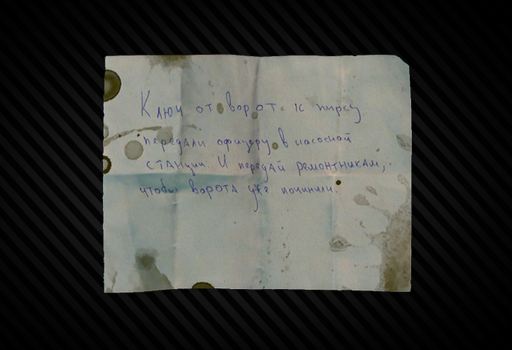 Ключ от ворот к пирсу
передали офицеру в насосной
станции. И передай ремонтникам,
чтобы ворота уже починили.